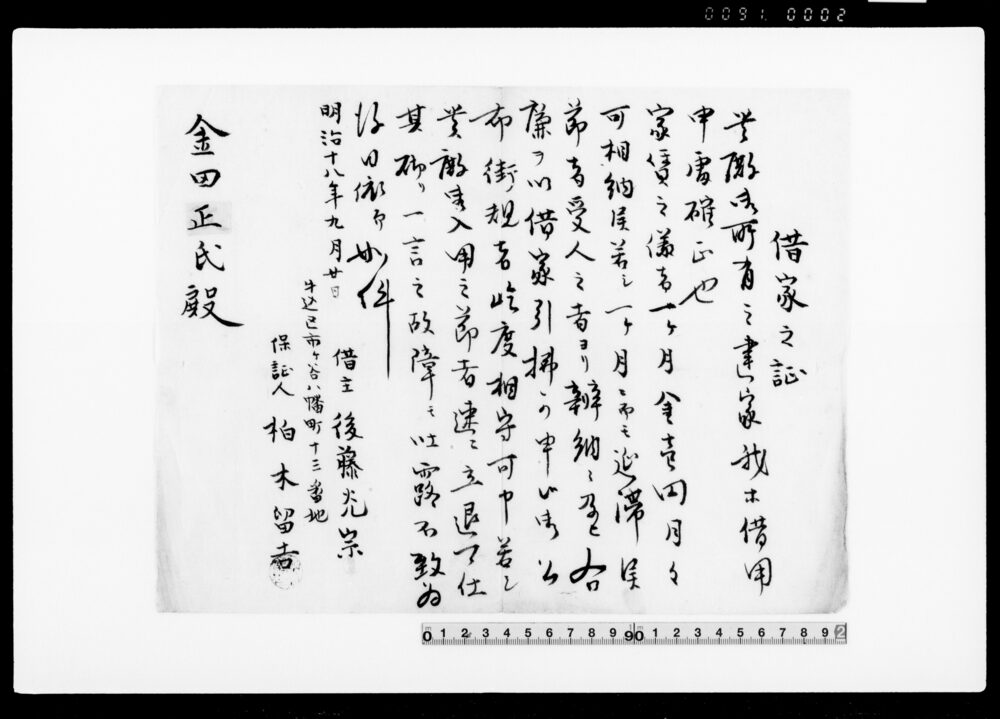 0091. 0002
借家之証
貴殿御所有之建家我等借用
申処確正也
家賃之儀者一ヶ月金壱円月々
可相納候若シ一ヶ月ニ而モ延滞候
節者受人之者ヨリ弁納ニ及ヒ
廉ヲ以借家引払可申候御公
布街規者屹度相守可申若シ
貴殿御入用之節者速ニ立退可仕
其砌リ一言之故障モ吐露不致為
後日依而如件
明治十八年九月廿日
牛込区市ヶ谷八幡町十三番地
借主 後藤光宗
保証人 柏木留吉
金田正氏殿
0 1 2 3 4 5 6 7 8 9 0 1 2 3 4 5 6 7 8 9 2